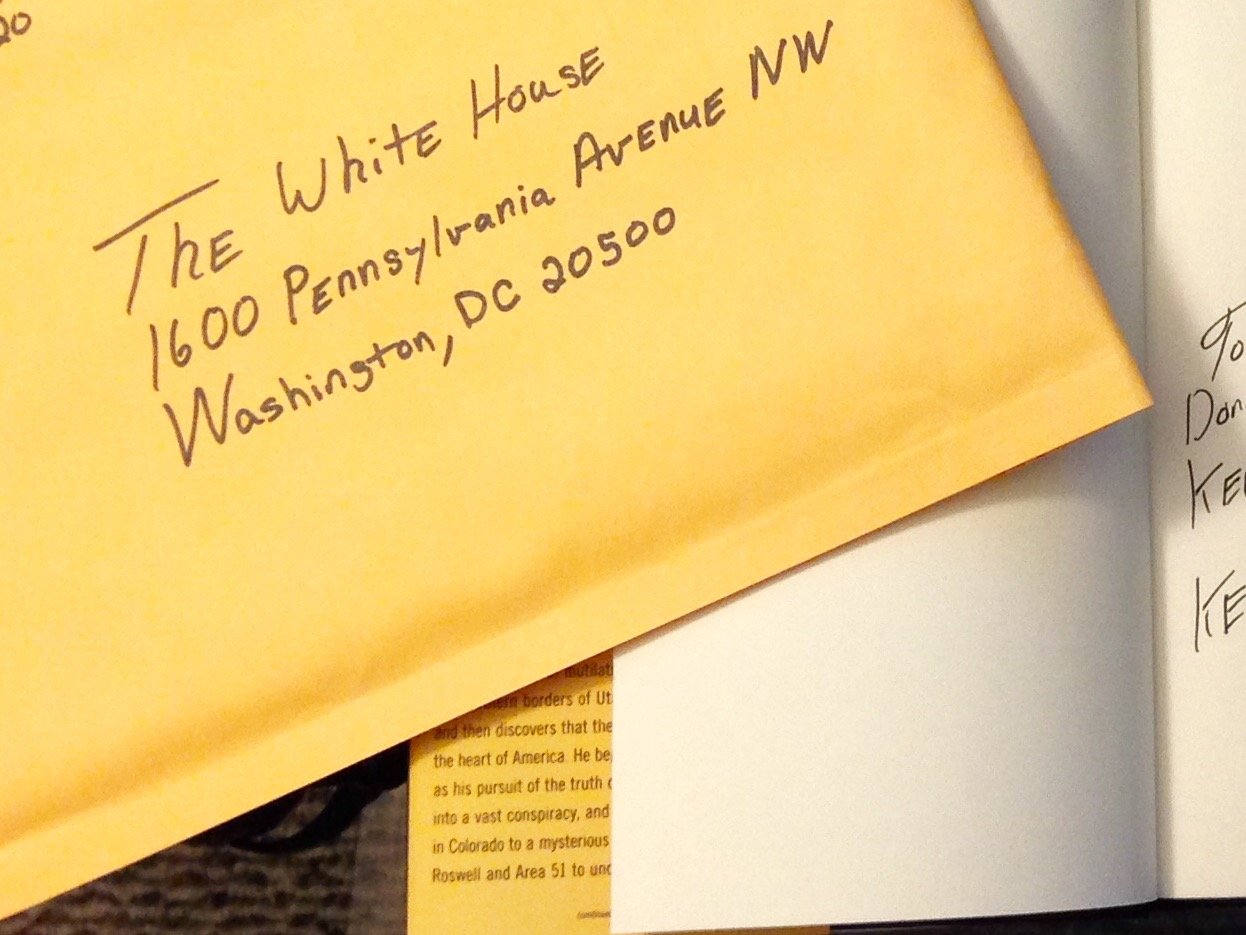 20
The White House
1600 Pennsylvania Avenue NW
Washington, DC 20500
To
Don
KE
KE
borders of Ut
and then discovers that the
the heart of America. He be
as his pursuit of the truth
into a vast conspiracy, and
in Colorado to a mysterious
Roswell and Area 51 to unc